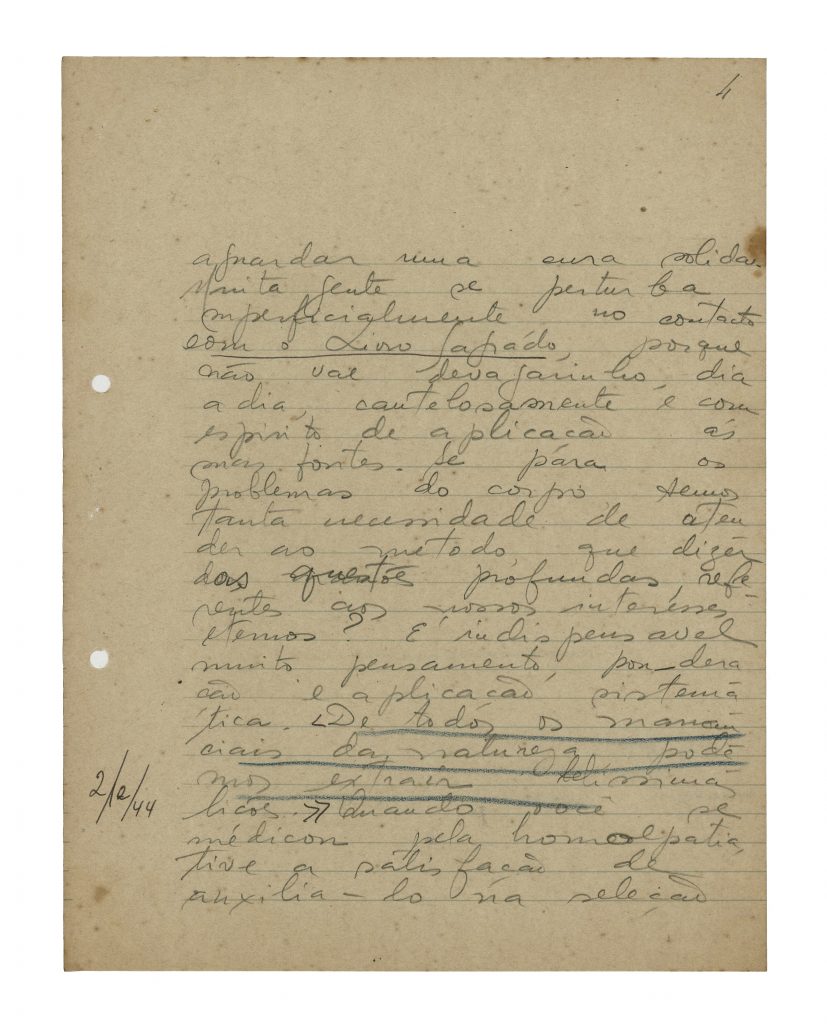 4
aguardar uma cura solida.
Muita gente se perturba
superficialmente no contacto
com o Livro Sagrado, porque
não vae devagarinho, dia
a dia, cautelosamente e com
espirito de aplicação ás
suas fontes. Se pára os
problemas do corpo temos
tanta necessidade de aten
der ao método que dizer
das questões profundas, refe-
rentes aos nossos interésses
eternos? É indispensavel
muito pensamento, pon_dera
ção e aplicação sistemá
tica. <De todos os manan
ciais da natureza podê
mos extrair belissimas
licões.>> Quando você se
médicou pela homeopatia,
tive a satisfação de
auxilia-lo na seleção
2/10/44